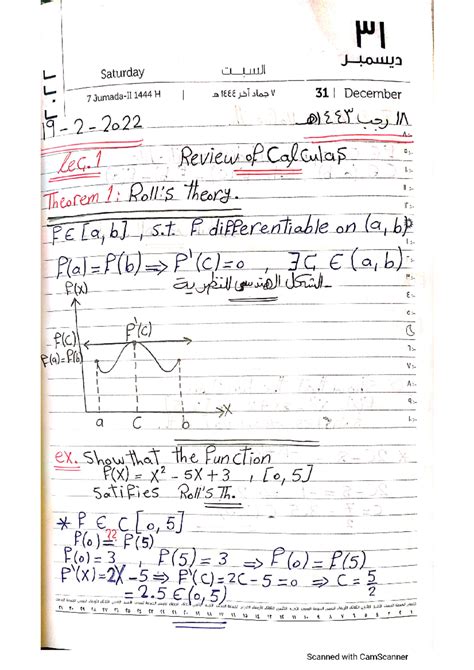 ٣١
ديسمبر
Saturday
السبت
7 Jumada-II 1444 H
٧ جماد آخر ١٤٤٤ هـ
31 | December
19-2-2022
١٨ رجب ١٤٤٣هـ
Lec.1
Review of Calculas
Theorem 1: Roll's Theory.
f∈[a,b], s.t f differentiable on (a,b)
f(a)=f(b)⇒f'(C)=0, ∃C∈(a,b)
الشكل الهندسي للنظرية
f(x)
f'(C)
f(C)
f(a)=f(b)
a C b
x
ex. Show that the function
f(x)=x²-5x+3, [0,5]
Satifies Roll's Th.
* f∈C[0,5]
??
f(0)=f(5)
f(0)=3, f(5)=3⇒f(0)=f(5)
f'(x)=2x-5⇒f'(C)=2C-5=0⇒C=5/2
=2.5∈(0,5)
Scanned with CamScanner